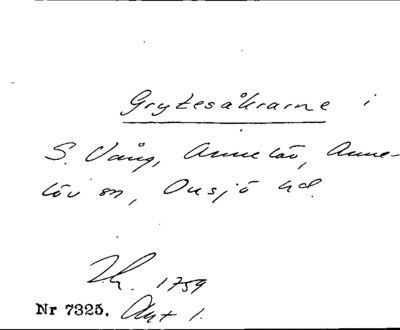 Grytesåkrarne i
S. Vång, Annelöv, Anne-
löv sn, Onsjö hd.
1759
Nr 7325. Akt 1.